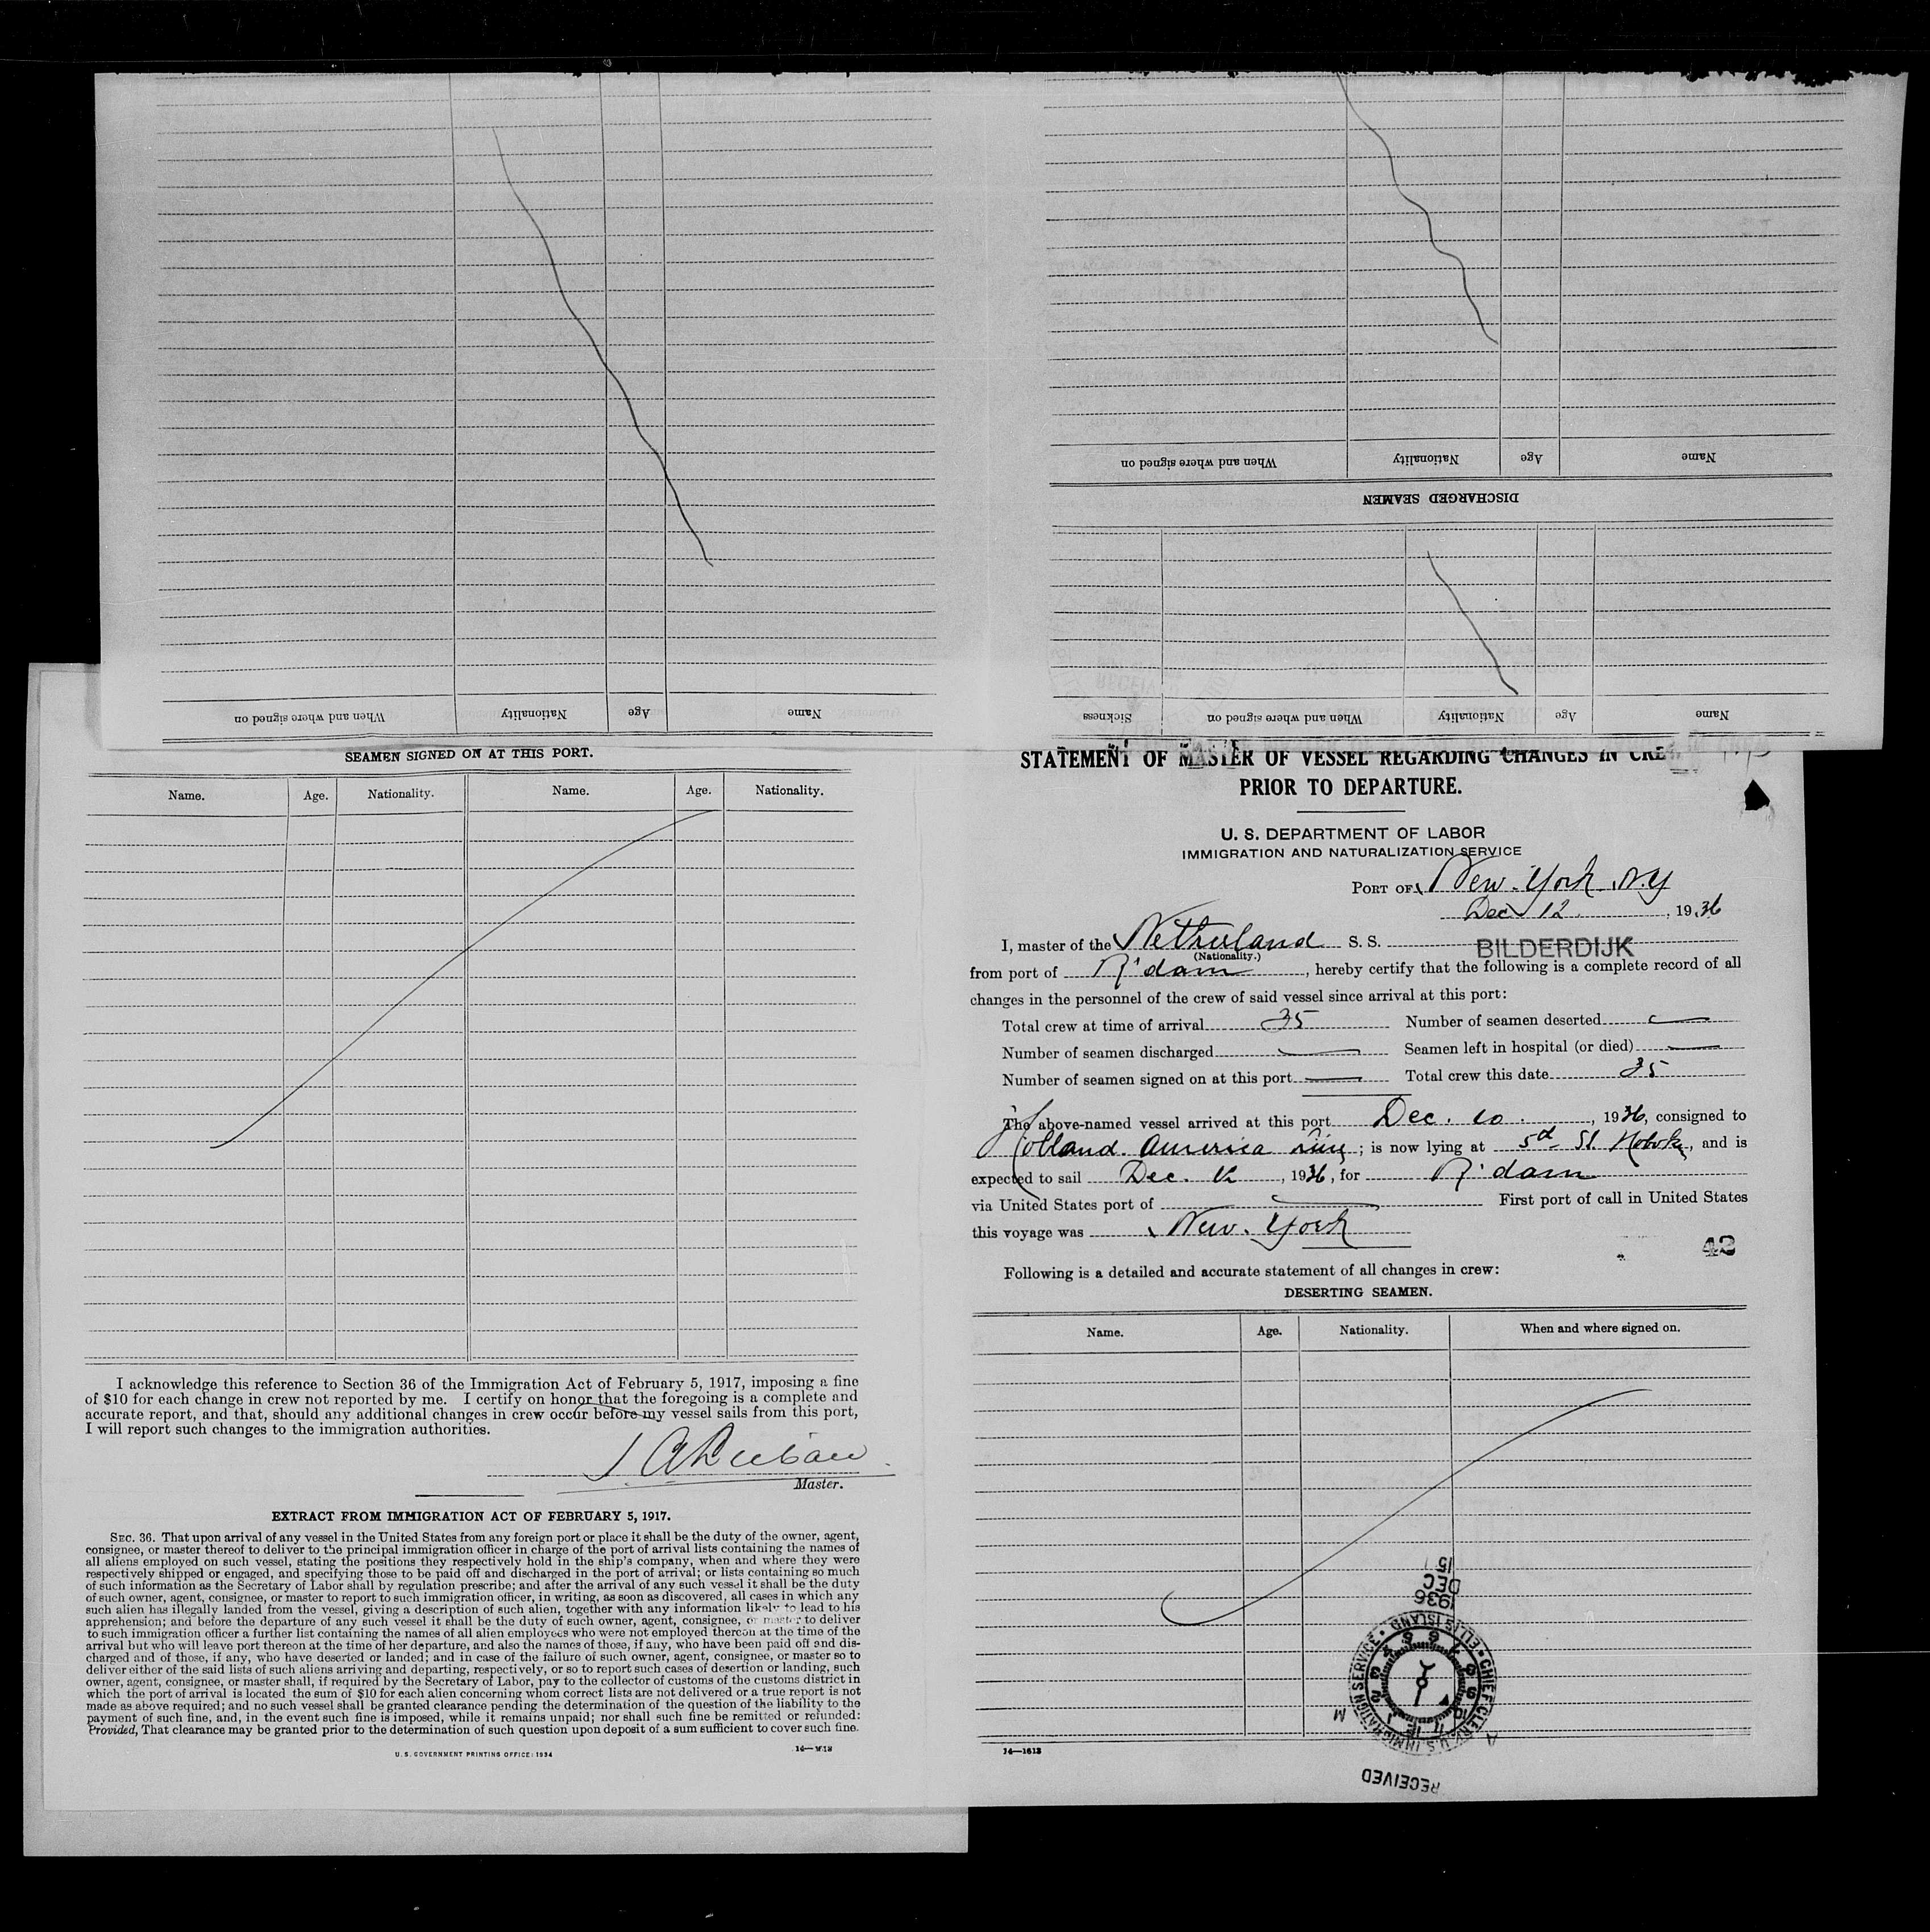 When and where signed on Nationality Age Name
When and where signed on Nationality Age Name
DISCHARGED SEAMEN
Sickness When and where signed on Nationality Age Name
SEAMEN SIGNED ON AT THIS PORT.
Name. Age. Nationality. Name. Age. Nationality.
I acknowledge this reference to Section 36 of the Immigration Act of February 5, 1917, imposing a fine
of $10 for each change in crew not reported by me. I certify on honor that the foregoing is a complete and
accurate report, and that, should any additional changes in crew occur before my vessel sails from this port,
I will report such changes to the immigration authorities.
Master.
EXTRACT FROM IMMIGRATION ACT OF FEBRUARY 5, 1917.
SEC. 36. That upon arrival of any vessel in the United States from any foreign port or place it shall be the duty of the owner, agent,
consignee, or master thereof to deliver to the principal immigration officer in charge of the port of arrival lists containing the names of
all aliens employed on such vessel, stating the positions they respectively hold in the ship's company, when and where they were
respectively shipped or engaged, and specifying those to be paid off and discharged in the port of arrival; or lists containing so much
of such information as the Secretary of Labor shall by regulation prescribe; and after the arrival of any such vessel it shall be the duty
of such owner, agent, consignee, or master to report to such immigration officer, in writing, as soon as discovered, all cases in which any
such alien has illegally landed from the vessel, giving a description of such alien, together with any information likely to lead to his
apprehension; and before the departure of any such vessel it shall be the duty of such owner, agent, consignee, or master to deliver
to such immigration officer a further list containing the names of all alien employees who were not employed thereon at the time of the
arrival but who will leave port thereon at the time of her departure, and also the names of those, if any, who have been paid off and dis-
charged and of those, if any, who have deserted or landed; and in case of the failure of such owner, agent, consignee, or master so to
deliver either of the said lists of such aliens arriving and departing, respectively, or so to report such cases of desertion or landing, such
owner, agent, consignee, or master shall, if required by the Secretary of Labor, pay to the collector of customs of the customs district in
which the port of arrival is located the sum of $10 for each alien concerning whom correct lists are not delivered or a true report is not
made as above required; and no such vessel shall be granted clearance pending the determination of the question of the liability to the
payment of such fine, and, in the event such fine is imposed, while it remains unpaid; nor shall such fine be remitted or refunded:
Provided, That clearance may be granted prior to the determination of such question upon deposit of a sum sufficient to cover such fine.
U. S. GOVERNMENT PRINTING OFFICE: 1934
STATEMENT OF MASTER OF VESSEL REGARDING CHANGES IN CRE
PRIOR TO DEPARTURE.
U. S. DEPARTMENT OF LABOR
IMMIGRATION AND NATURALIZATION SERVICE
PORT OF New York N.Y
Dec 12 , 1936
I, master of the Netherland S. S. BILDERDIJK
(Nationality.)
from port of R'dam , hereby certify that the following is a complete record of all
changes in the personnel of the crew of said vessel since arrival at this port:
Total crew at time of arrival 35 Number of seamen deserted —
Number of seamen discharged — Seamen left in hospital (or died) —
Number of seamen signed on at this port — Total crew this date 35
The above-named vessel arrived at this port Dec. 10. , 1936, consigned to
Holland America Line ; is now lying at 5th St. Hoboken, and is
expected to sail Dec. 12 , 1936, for R'dam
via United States port of — First port of call in United States
this voyage was New York
42
Following is a detailed and accurate statement of all changes in crew:
DESERTING SEAMEN.
Name. Age. Nationality. When and where signed on.
14—1613
RECEIVED
CHIEF CLERK U.S. IMMIGRATION SERVICE • ELLIS ISLAND •
A M
1936
DEC
15